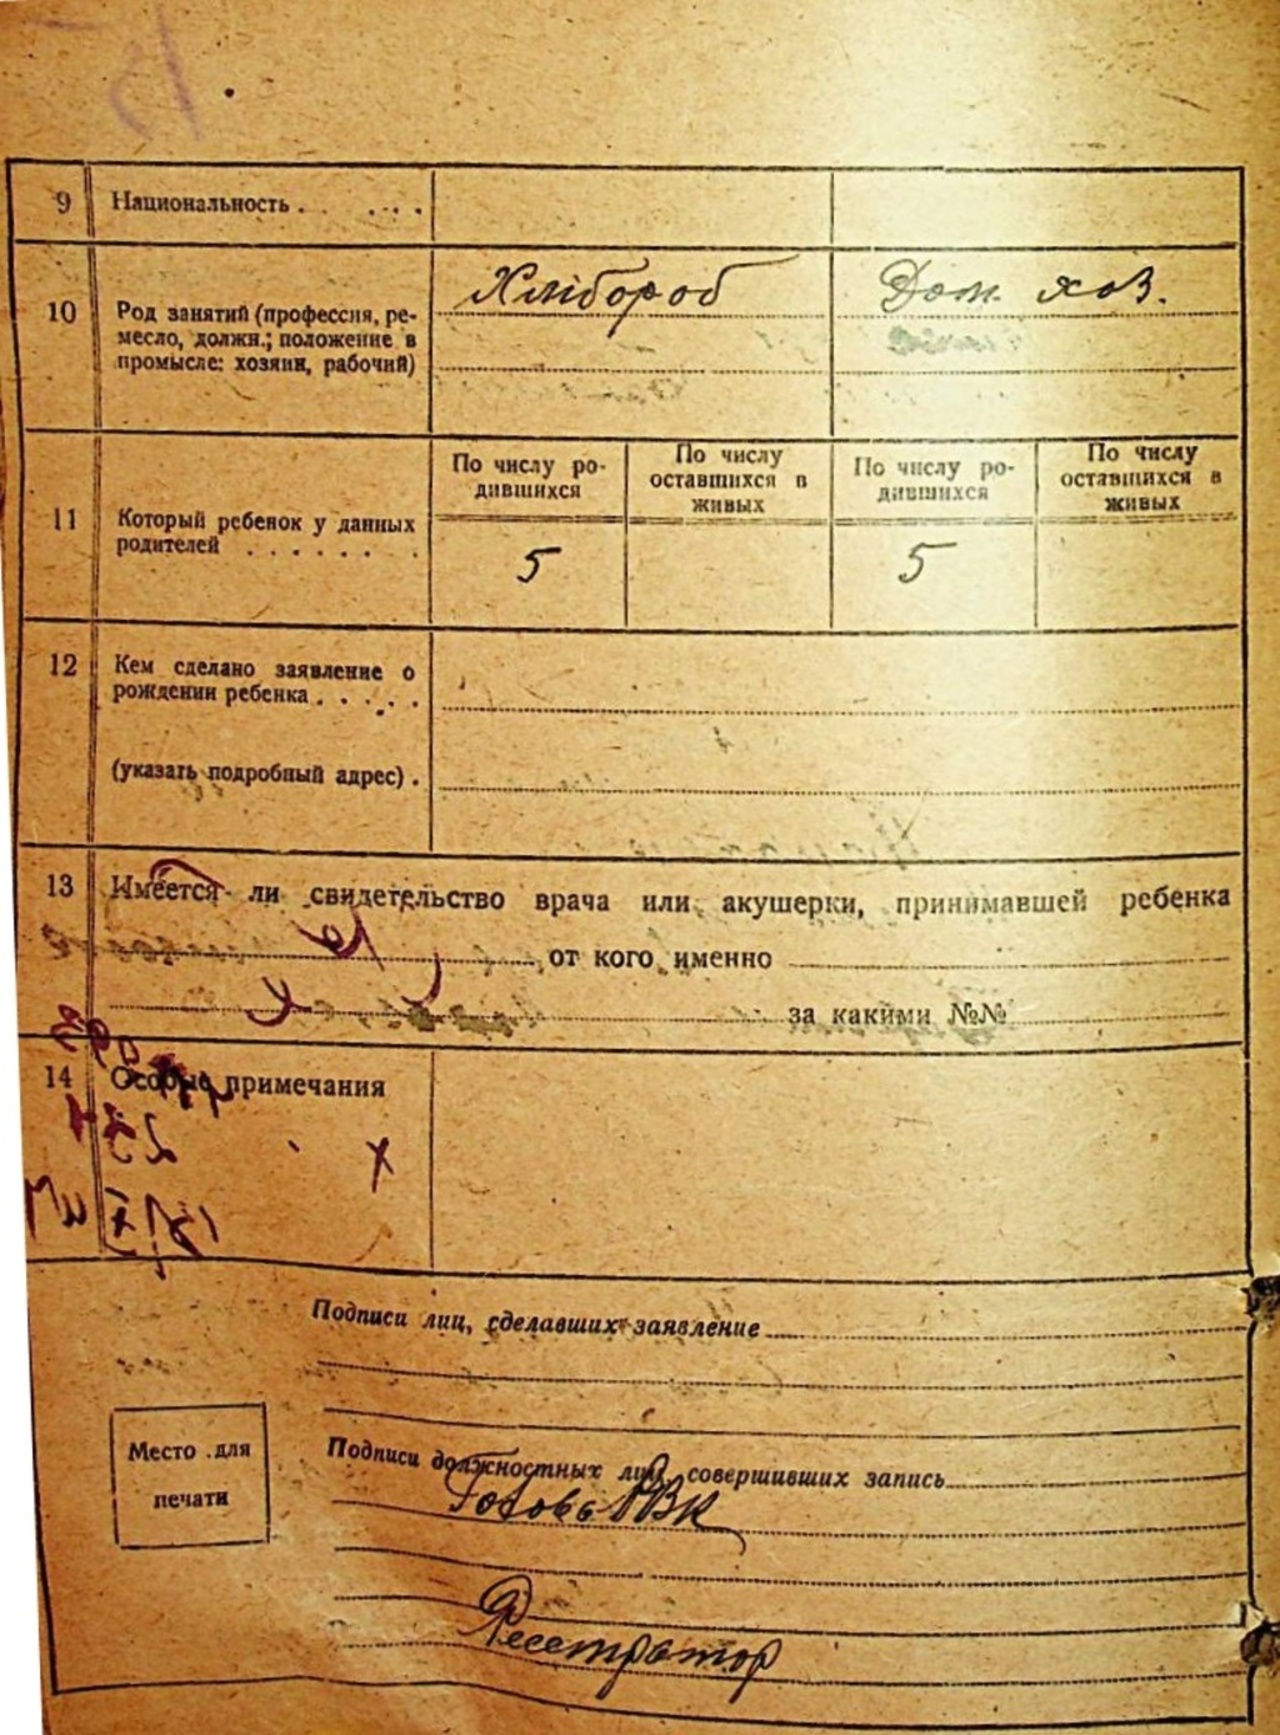 9 Национальность . . . . .
10 Род занятий (профессия, ре-
месло, должн.; положение в
промысле: хозяин, рабочий)
Хлібороб
Дом. хоз.
11 Который ребенок у данных
родителей . . . . . . .
По числу ро-
дившихся
По числу
оставшихся в
живых
По числу ро-
дившихся
По числу
оставшихся в
живых
5
5
12 Кем сделано заявление о
рождении ребенка . . . . .
(указать подробный адрес) .
13 Имеется- ли свидетельство врача или акушерки, принимавшей ребенка
от кого именно
за какими №№
14 Особые примечания
Подписи лиц, сделавших заявление
Место для
печати
Подписи должностных лиц, совершивших запись
Голова РВК
Реєстратор